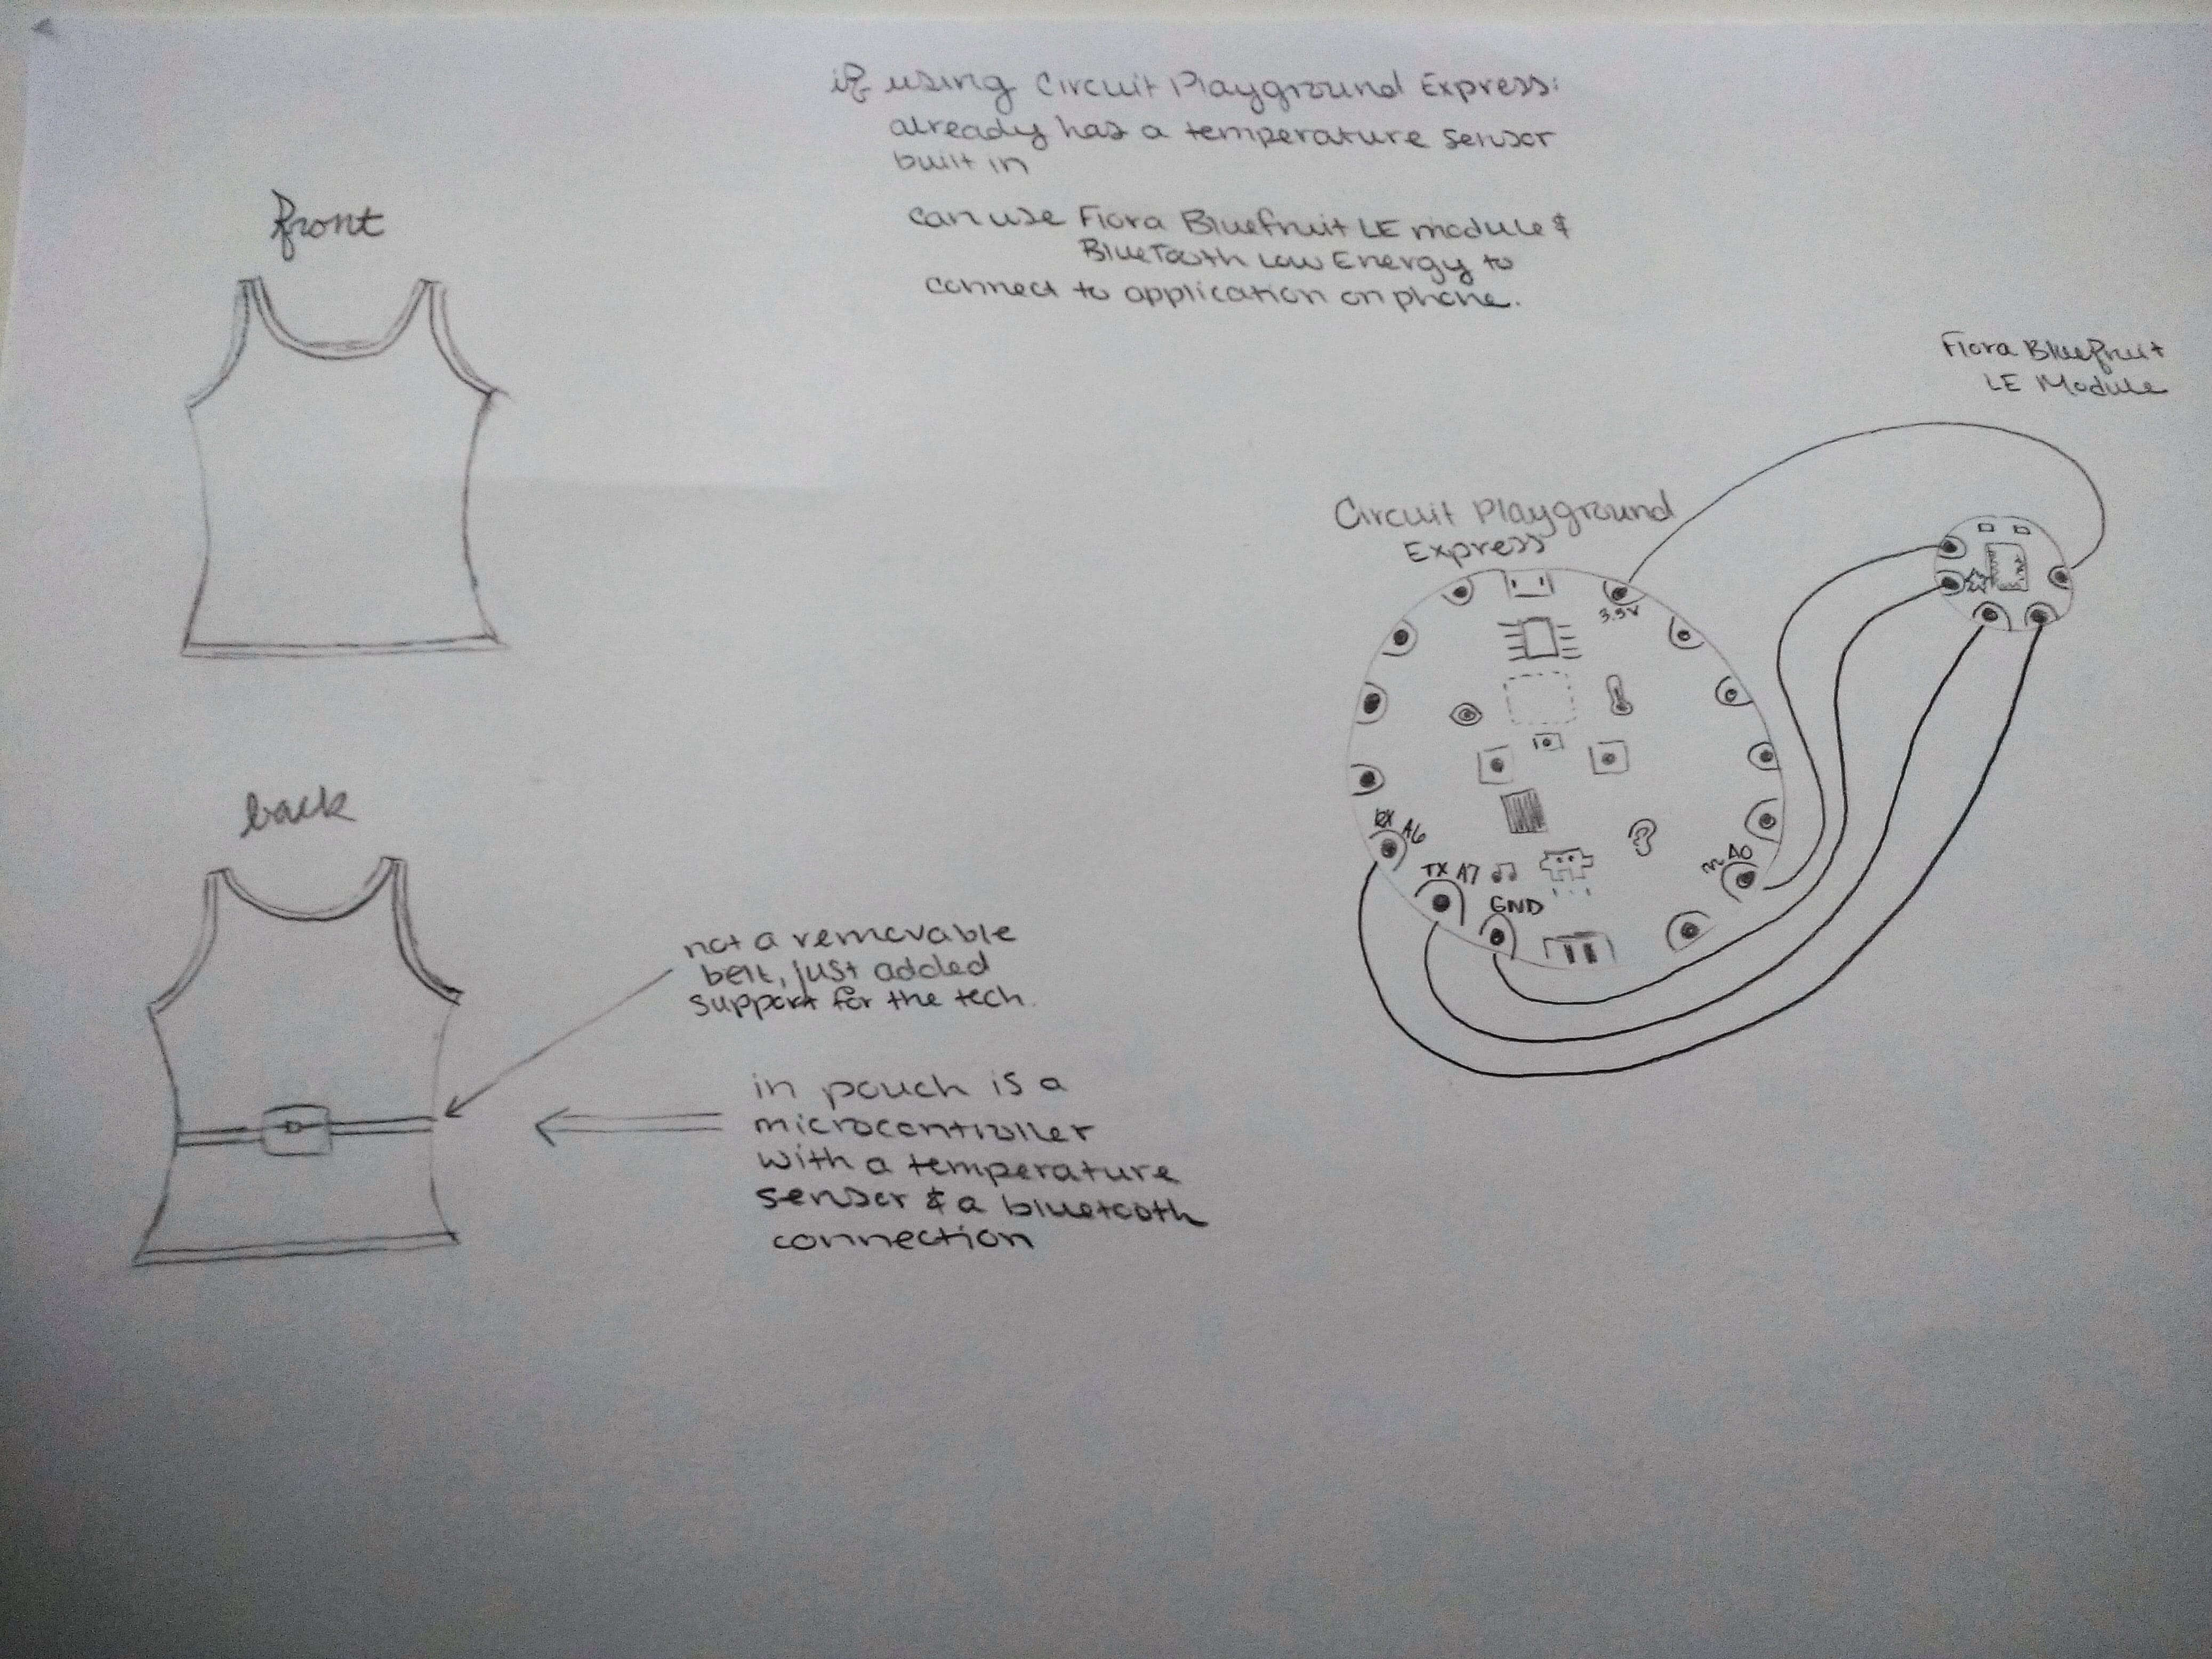 if using Circuit Playground Express:
already has a temperature sensor
built in
can use Flora Bluefruit LE module &
BlueTooth Low Energy to
connect to application on phone.
front
Flora Bluefruit
LE Module
Circuit Playground
Express
3.3V
back
RX A6
TX A7
GND
A0
not a removable
belt, just added
support for the tech.
in pouch is a
microcontroller
with a temperature
sensor & a bluetooth
connection